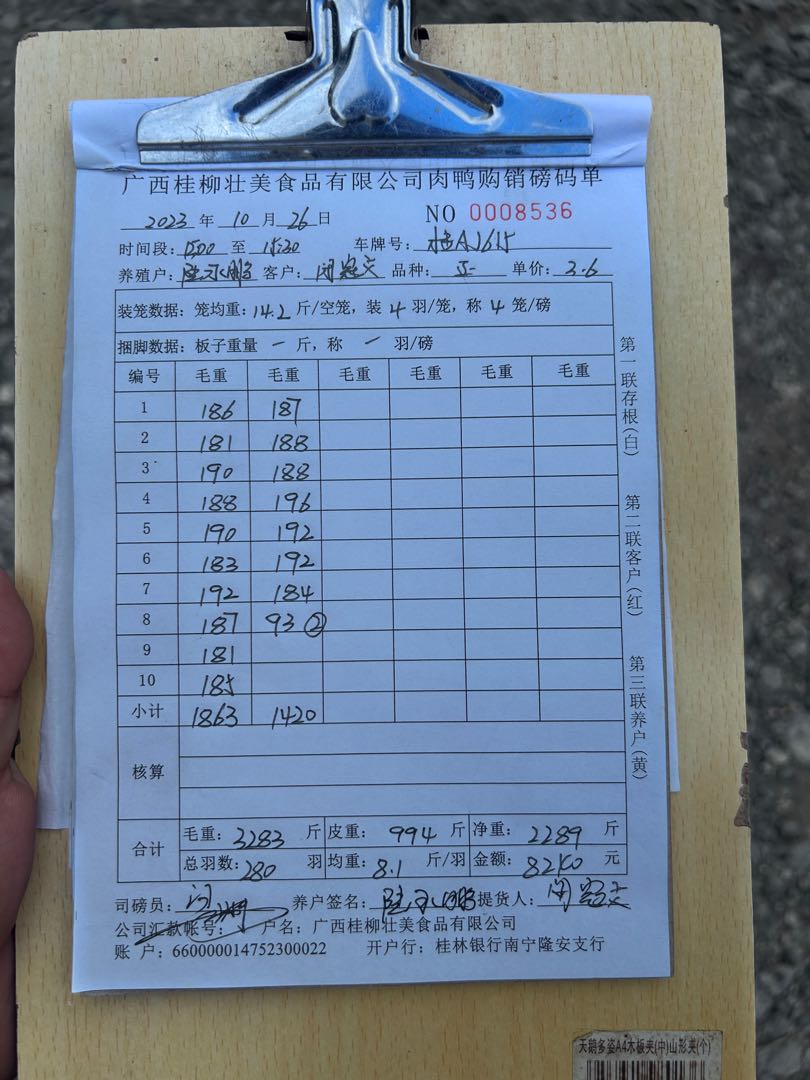 广西桂柳壮美食品有限公司肉鸭购销磅码单
2023 年 10 月 26 日 NO 0008536
时间段: 至 15:30 车牌号: 桂A J1615
养殖户: 客户: 品种: 单价: 3.6
装笼数据: 笼均重: 14.2 斤/空笼, 装 4 羽/笼, 称 4 笼/磅
捆脚数据: 板子重量 一 斤, 称 一 羽/磅
编号 毛重 毛重 毛重 毛重 毛重 毛重
1 186 187
2 181 188
3 190 188
4 188 196
5 190 192
6 183 192
7 192 184
8 187 93 ②
9 181
10 185
小计 1863 1420
核算
合计 毛重: 3283 斤 皮重: 994 斤 净重: 2289 斤
总羽数: 280 羽 均重: 8.1 斤/羽 金额: 元
司磅员: 养户签名: 提货人:
公司汇款帐号: 户名: 广西桂柳壮美食品有限公司
账 户: 660000014752300022 开户行: 桂林银行南宁隆安支行
第一联存根(白)
第二联客户(红)
第三联养户(黄)
天鹅多姿A4木板夹(中)山形夹(个)